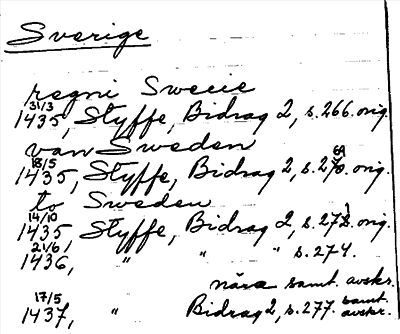 Sverige
regni Sweeie
31/3
1435, Styffe, Bidrag 2, s. 266. orig.
van Sweden
18/5
1435, Styffe, Bidrag 2, s. 269. orig.
to Sweden
14/10
1435, Styffe, Bidrag 2, s. 272. orig.
21/6
1436, " " " s. 274.
nära samt. avskr.
17/5
1437, " Bidrag 2, s. 277. samt. avskr.